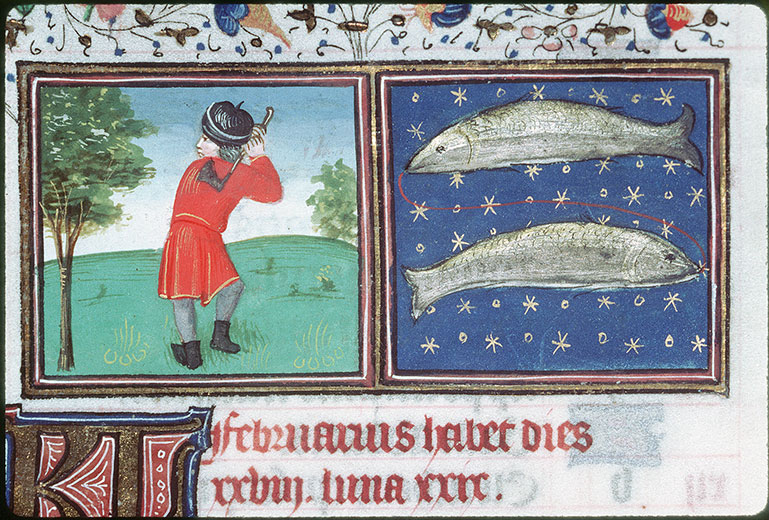 KL februarius habet dies
xxviij. luna xxix.